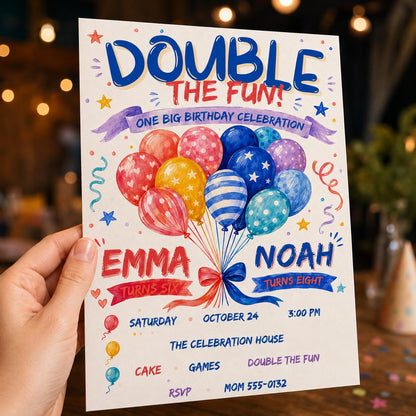 DOUBLE
THE FUN!
ONE BIG BIRTHDAY CELEBRATION
EMMA
TURNS SIX
NOAH
TURNS EIGHT
SATURDAY OCTOBER 24 3:00 PM
THE CELEBRATION HOUSE
CAKE GAMES DOUBLE THE FUN
RSVP MOM 555-0132